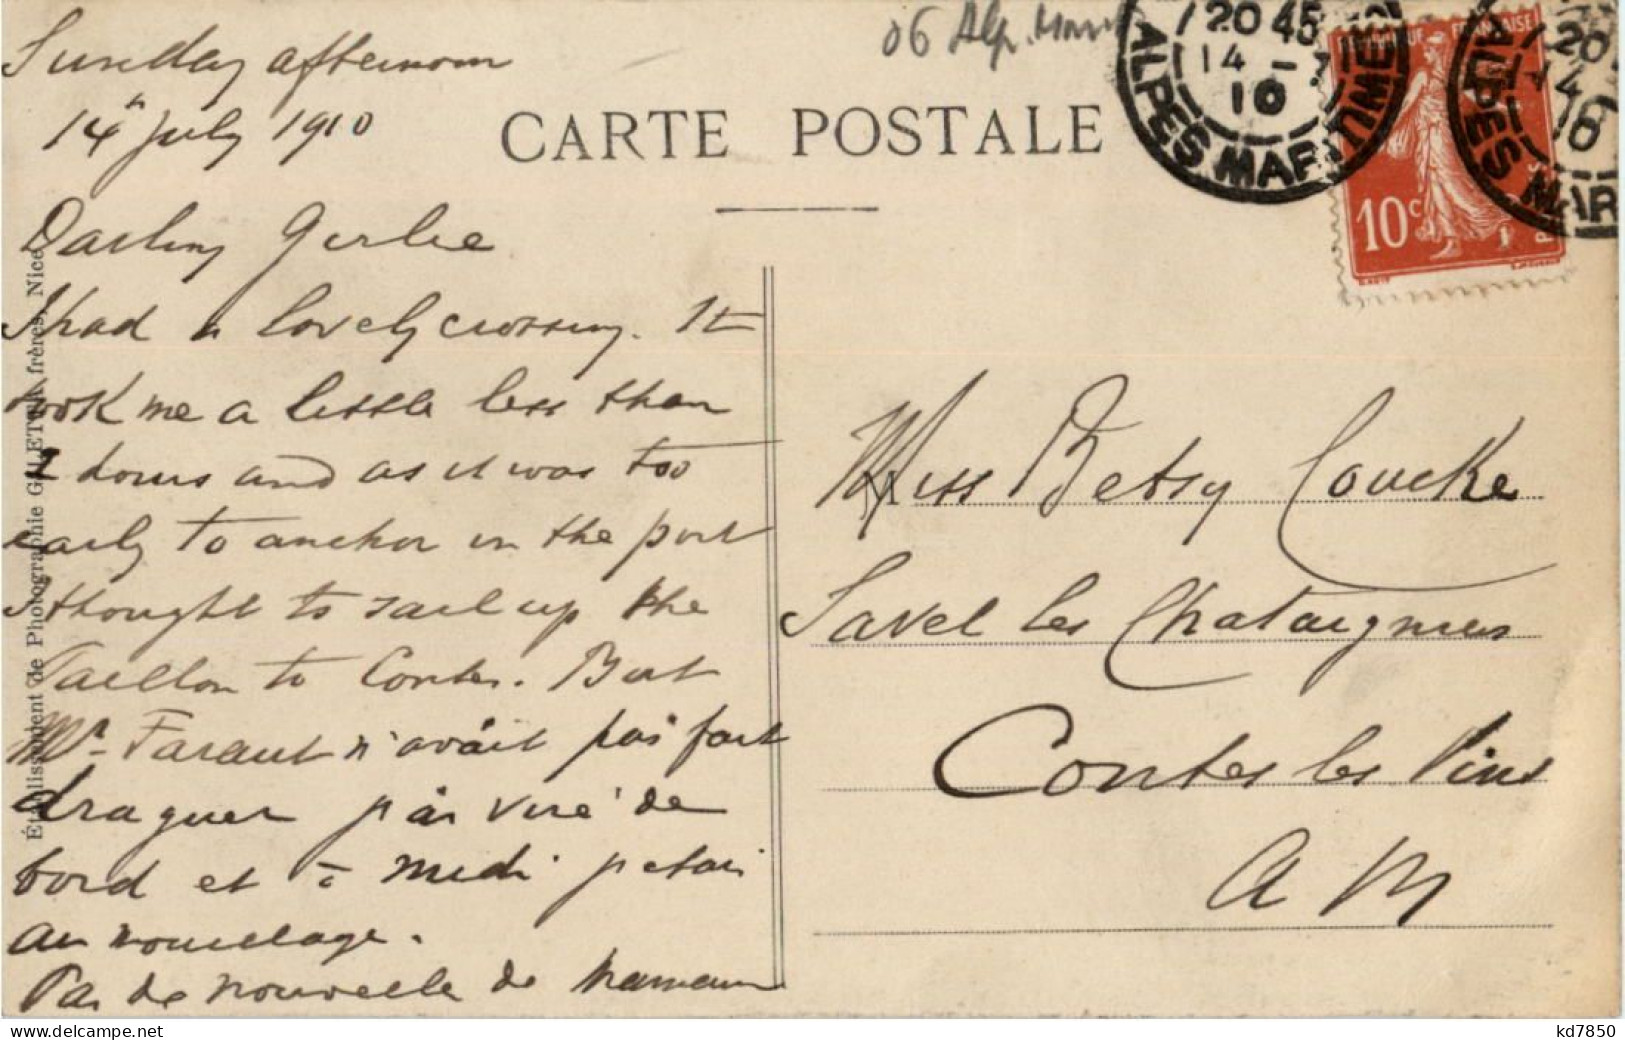 Sunday afternoon
14th July 1910
06 Alp. Mar
CARTE POSTALE
20 45
14 - 7
10
ALPES MARITIMES
RÉPUBLIQUE FRANÇAISE
10c
20
14
10
ALPES MAR
Darling Girlie
I had a lovely crossing. It
took me a little less than
2 hours and as it was too
early to anchor in the port
I thought to sail up the
Paillon to Contes. But
Mr. Faraut n'avait pas fait
draguer j'ai viré de
bord et à midi j'etais
au mouillage.
Pas de nouvelle de maman
Établissement de Photographie GILETTA, frères, Nice
M
Miss Betsy Coucke
Savel les Chataigniers
Contes les Pins
A M
kd7850